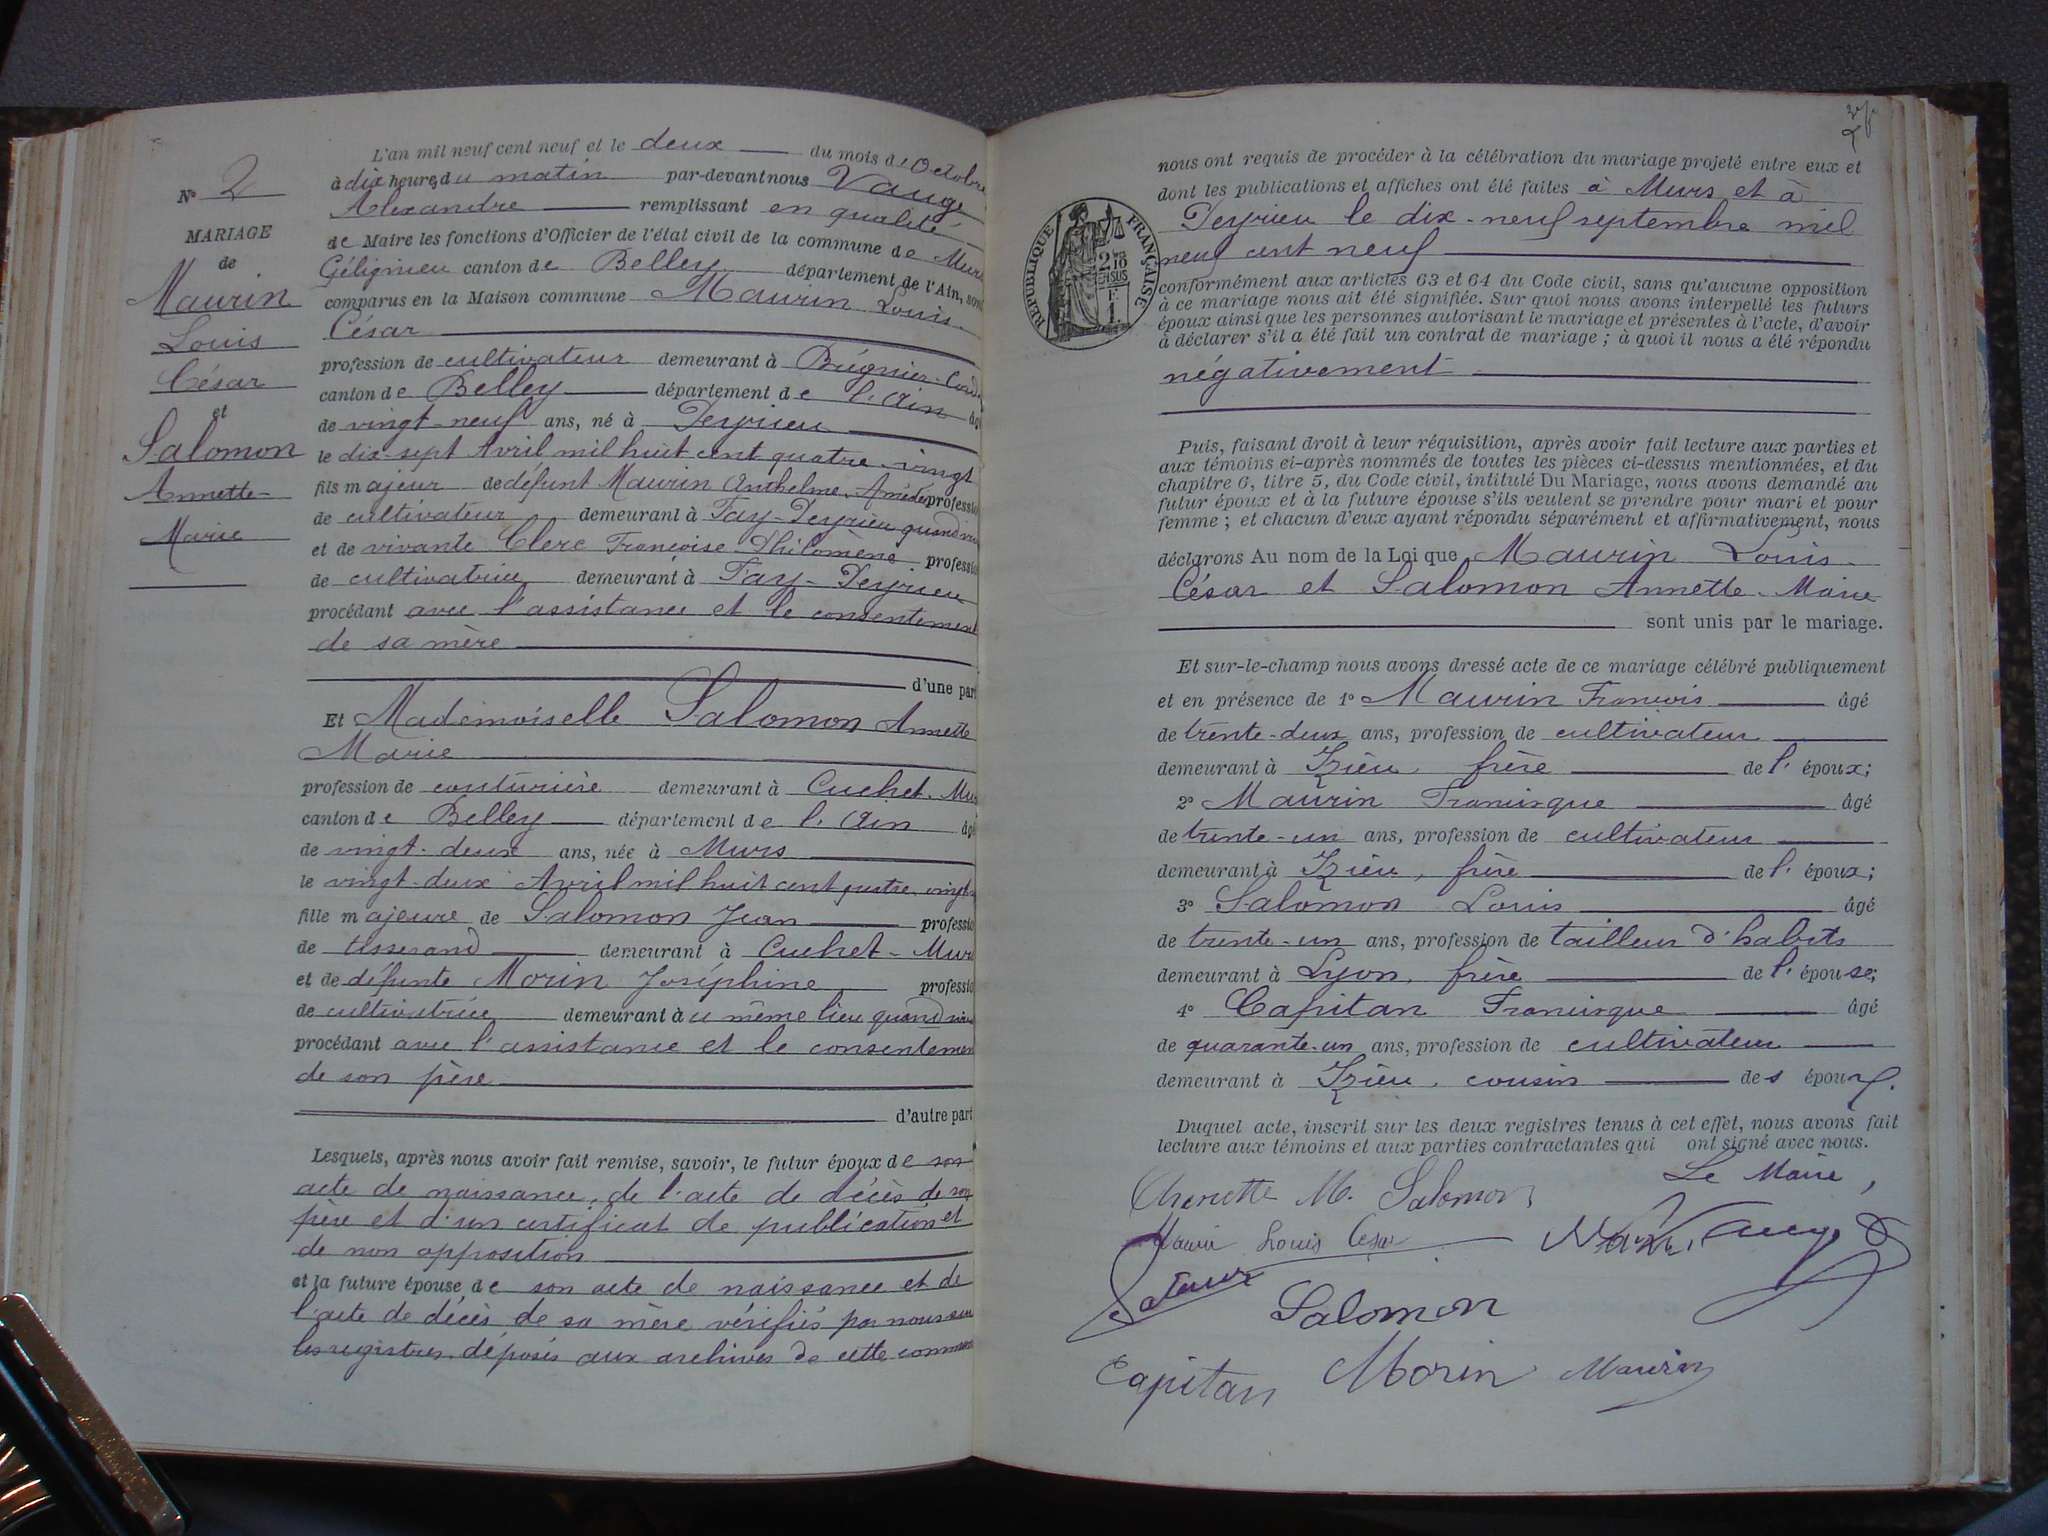 N° 2
MARIAGE
de
Maurin
Louis
César
et
Salomon
Annette-
Marie
L'an mil neuf cent neuf et le deux du mois de Octobre
à dix heures du matin par-devant nous Vauge
Alexandre remplissant en qualité
de Maire les fonctions d'Officier de l'état civil de la commune de Murs
Gélignieu canton de Belley département de l'Ain, sont
comparus en la Maison commune Maurin Louis-
César
profession de cultivateur demeurant à Brégnier-Cordon
canton de Belley département de l'Ain âgé
de vingt-neuf ans, né à Peyrieu
le dix-sept Avril mil huit cent quatre-vingt
fils majeur de défunt Maurin Anthelme-Amédé profession
de cultivateur demeurant à Fay-Peyrieu quand vivait
et de vivante Clerc Françoise-Philomène profession
de cultivatrice demeurant à Fay-Peyrieu
procédant avec l'assistance et le consentement
de sa mère
d'une part
Et Mademoiselle Salomon Annette
Marie
profession de couturière demeurant à Cuchet-Murs
canton de Belley département de l'Ain âgée
de vingt-deux ans, née à Murs
le vingt-deux Avril mil huit cent quatre-vingt-
fille majeure de Salomon Jean profession
de tisserand demeurant à Cuchet-Murs
et de défunte Morin Joséphine profession
de cultivatrice demeurant au même lieu quand vivait
procédant avec l'assistance et le consentement
de son père
d'autre part
Lesquels, après nous avoir fait remise, savoir, le futur époux de son
acte de naissance, de l'acte de décès de son
père et d'un certificat de publication et
de non opposition
et la future épouse de son acte de naissance et de
l'acte de décès de sa mère vérifiés par nous sur
les registres déposés aux archives de cette commune
RÉPUBLIQUE FRANÇAISE
nous ont requis de procéder à la célébration du mariage projeté entre eux et
dont les publications et affiches ont été faites à Murs et à
Peyrieu le dix-neuf septembre mil
neuf cent neuf
conformément aux articles 63 et 64 du Code civil, sans qu'aucune opposition
à ce mariage nous ait été signifiée. Sur quoi nous avons interpellé les futurs
époux ainsi que les personnes autorisant le mariage et présentes à l'acte, d'avoir
à déclarer s'il a été fait un contrat de mariage ; à quoi il nous a été répondu
négativement
Puis, faisant droit à leur réquisition, après avoir fait lecture aux parties et
aux témoins ci-après nommés de toutes les pièces ci-dessus mentionnées, et du
chapitre 6, titre 5, du Code civil, intitulé Du Mariage, nous avons demandé au
futur époux et à la future épouse s'ils veulent se prendre pour mari et pour
femme ; et chacun d'eux ayant répondu séparément et affirmativement, nous
déclarons Au nom de la Loi que Maurin Louis-
César et Salomon Annette-Marie
sont unis par le mariage.
Et sur-le-champ nous avons dressé acte de ce mariage célébré publiquement
et en présence de 1° Maurin François âgé
de trente-deux ans, profession de cultivateur
demeurant à Izieu, frère de l'époux;
2° Maurin Francisque âgé
de trente-un ans, profession de cultivateur
demeurant à Izieu, frère de l'époux;
3° Salomon Louis âgé
de trente-un ans, profession de tailleur d'habits
demeurant à Lyon, frère de l'épouse;
4° Capitan Francisque âgé
de quarante-un ans, profession de cultivateur
demeurant à Izieu, cousin des époux.
Duquel acte, inscrit sur les deux registres tenus à cet effet, nous avons fait
lecture aux témoins et aux parties contractantes qui ont signé avec nous.
Le Maire,
M. Salomon
Louis César Vauge
Salomon
Capitan Morin Maurin